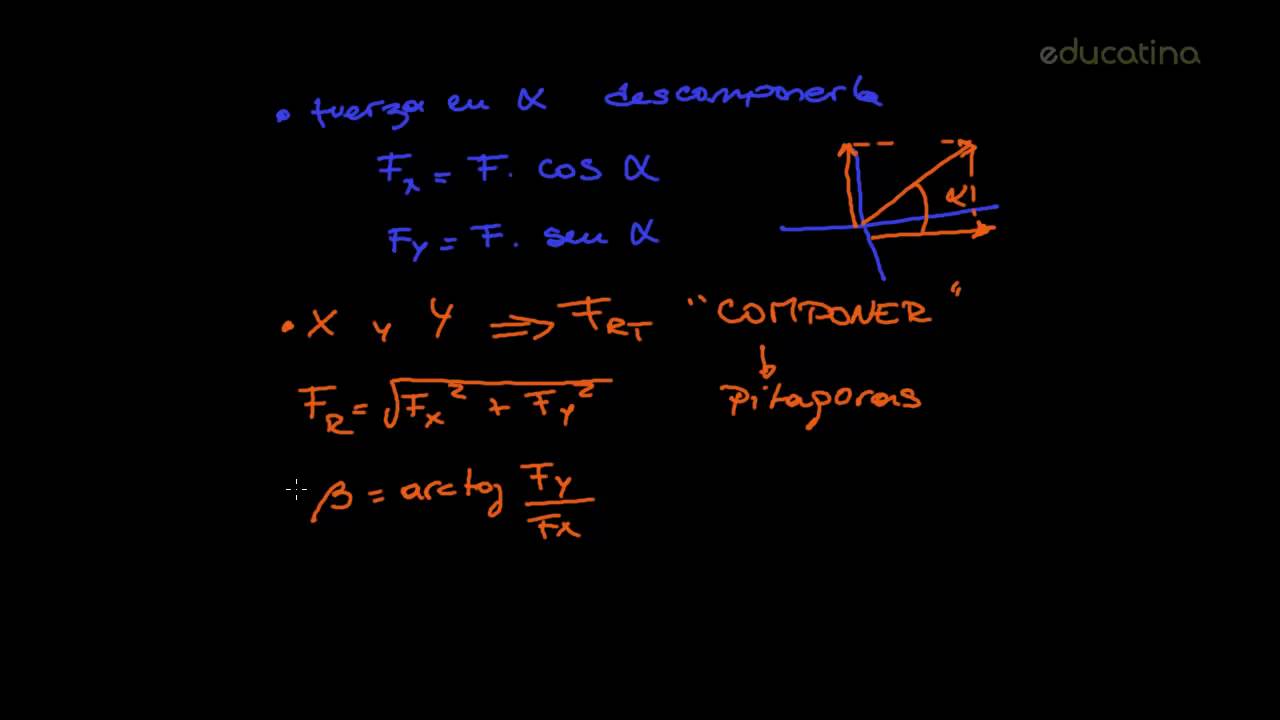 educatina
• fuerza en α descomponerla
Fx = F. cos α
Fy = F. sen α
α
• X y Y ⇒ FRT "COMPONER"
↓
FR = √Fx² + Fy² Pitagoras
β = arctg Fy/Fx